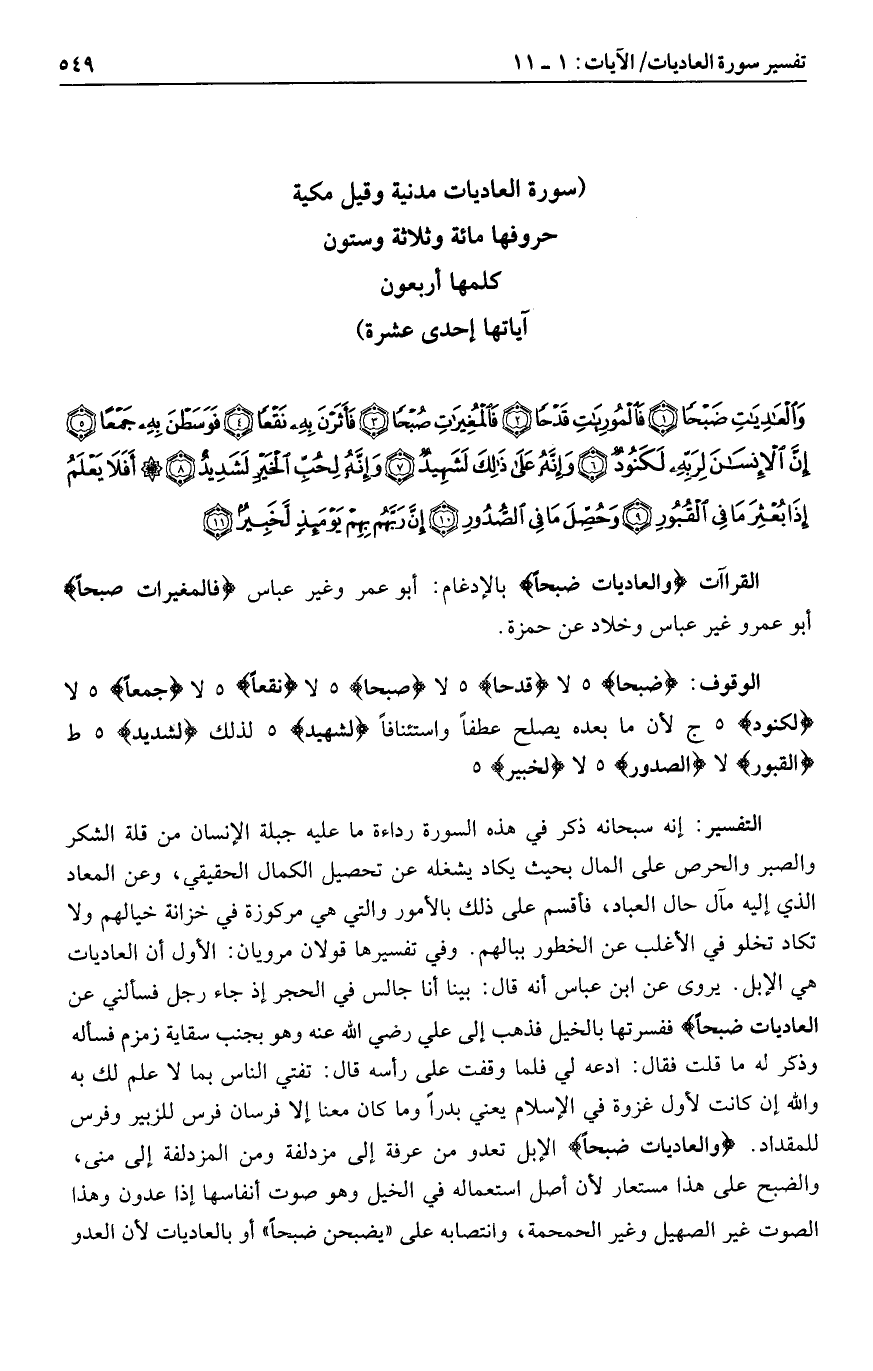 تفسير سورة العاديات/ الآيات: ١ - ١١ ٥٤٩
(سورة العاديات مدنية وقيل مكية
حروفها مائة وثلاثة وستون
كلمها أربعون
آياتها إحدى عشرة)
وَٱلْعَـٰدِيَـٰتِ ضَبْحًا ﴿١﴾ فَٱلْمُورِيَـٰتِ قَدْحًا ﴿٢﴾ فَٱلْمُغِيرَٰتِ صُبْحًا ﴿٣﴾ فَأَثَرْنَ بِهِۦ نَقْعًا ﴿٤﴾ فَوَسَطْنَ بِهِۦ جَمْعًا ﴿٥﴾
إِنَّ ٱلْإِنسَـٰنَ لِرَبِّهِۦ لَكَنُودٌ ﴿٦﴾ وَإِنَّهُۥ عَلَىٰ ذَٰلِكَ لَشَهِيدٌ ﴿٧﴾ وَإِنَّهُۥ لِحُبِّ ٱلْخَيْرِ لَشَدِيدٌ ﴿٨﴾ ۞ أَفَلَا يَعْلَمُ
إِذَا بُعْثِرَ مَا فِى ٱلْقُبُورِ ﴿٩﴾ وَحُصِّلَ مَا فِى ٱلصُّدُورِ ﴿١٠﴾ إِنَّ رَبَّهُم بِهِمْ يَوْمَئِذٍ لَّخَبِيرٌۢ ﴿١١﴾
القراآت ﴿والعاديات ضبحاً﴾ بالإدغام: أبو عمر وغير عباس ﴿فالمغيرات صبحاً﴾
أبو عمرو غير عباس وخلاد عن حمزة.
الوقوف: ﴿ضبحا﴾ ٥ لا ﴿قدحا﴾ ٥ لا ﴿صبحا﴾ ٥ لا ﴿نقعاً﴾ ٥ لا ﴿جمعاً﴾ ٥ لا
﴿لكنود﴾ ٥ ج لأن ما بعده يصلح عطفاً واستئنافاً ﴿لشهيد﴾ ٥ لذلك ﴿لشديد﴾ ٥ ط
﴿القبور﴾ لا ﴿الصدور﴾ ٥ لا ﴿لخبير﴾ ٥
التفسير: إنه سبحانه ذكر في هذه السورة رداءة ما عليه جبلة الإنسان من قلة الشكر
والصبر والحرص على المال بحيث يكاد يشغله عن تحصيل الكمال الحقيقي، وعن المعاد
الذي إليه مآل حال العباد، فأقسم على ذلك بالأمور والتي هي مركوزة في خزانة خيالهم ولا
تكاد تخلو في الأغلب عن الخطور ببالهم. وفي تفسيرها قولان مرويان: الأول أن العاديات
هي الإبل. يروى عن ابن عباس أنه قال: بينا أنا جالس في الحجر إذ جاء رجل فسألني عن
العاديات ضبحاً﴾ ففسرتها بالخيل فذهب إلى علي رضي الله عنه وهو بجنب سقاية زمزم فسأله
وذكر له ما قلت فقال: ادعه لي فلما وقفت على رأسه قال: تفتي الناس بما لا علم لك به
والله إن كانت لأول غزوة في الإسلام يعني بدراً وما كان معنا إلا فرسان فرس للزبير وفرس
للمقداد. ﴿والعاديات ضبحاً﴾ الإبل تعدو من عرفة إلى مزدلفة ومن المزدلفة إلى منى،
والضبح على هذا مستعار لأن أصل استعماله في الخيل وهو صوت أنفاسها إذا عدون وهذا
الصوت غير الصهيل وغير الحمحمة، وانتصابه على «يضبحن ضبحاً» أو بالعاديات لأن العدو